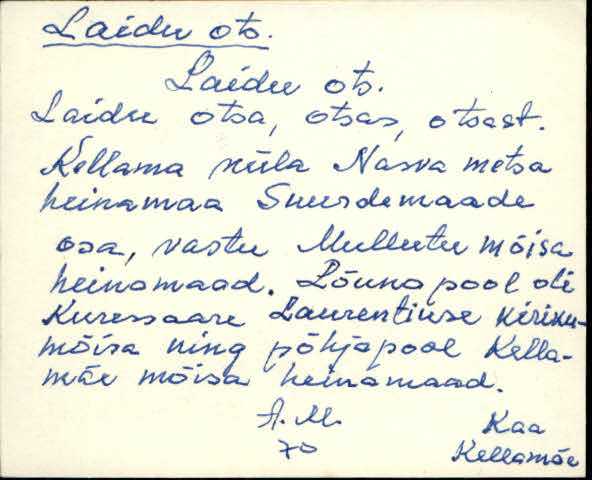 Laidu ots.
Laidu ots.
Laidu otsa, otsas, otsast.
Kellama küla Nasva metsa
heinamaa Suurdemaade
osa, vastu Mullutu mõisa
heinamaad. Lõuna pool oli
Kuressaare Laurentiuse kiriku-
mõisa ning põhjapool Kella-
mäe mõisa heinamaad.
A. M.
70
Kaa
Kellamäe